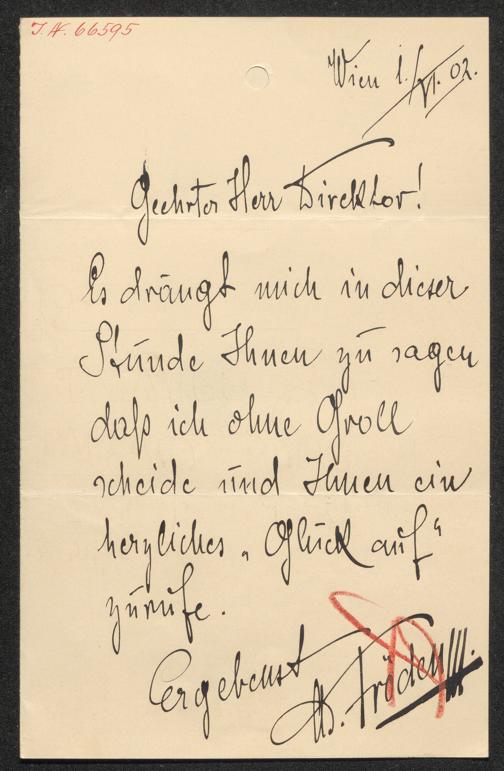 J.N. 66595
Wien 1./VI. 02.
Geehrter Herr Direktor!
Es drängt mich in dieser
Stunde Ihnen zu sagen
daß ich ohne Groll
scheide und Ihnen ein
herzliches „Glück auf“
zurufe.
Ergebenst
Ad. Fröden